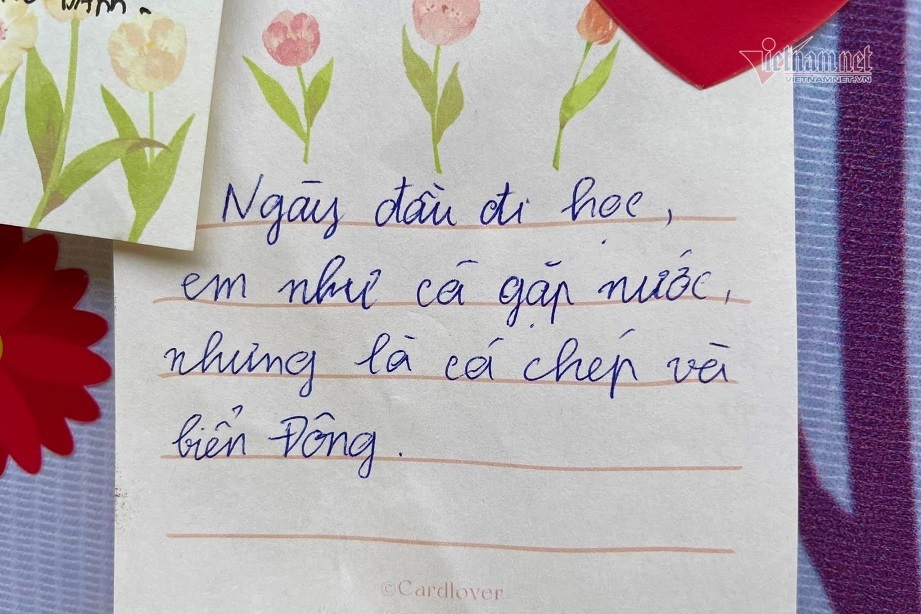 Vietnamnet
VIETNAMNET.VN
Ngày đầu đi học,
em như cá gặp nước,
nhưng là cá chép và
biển Đông.
©Cardlover